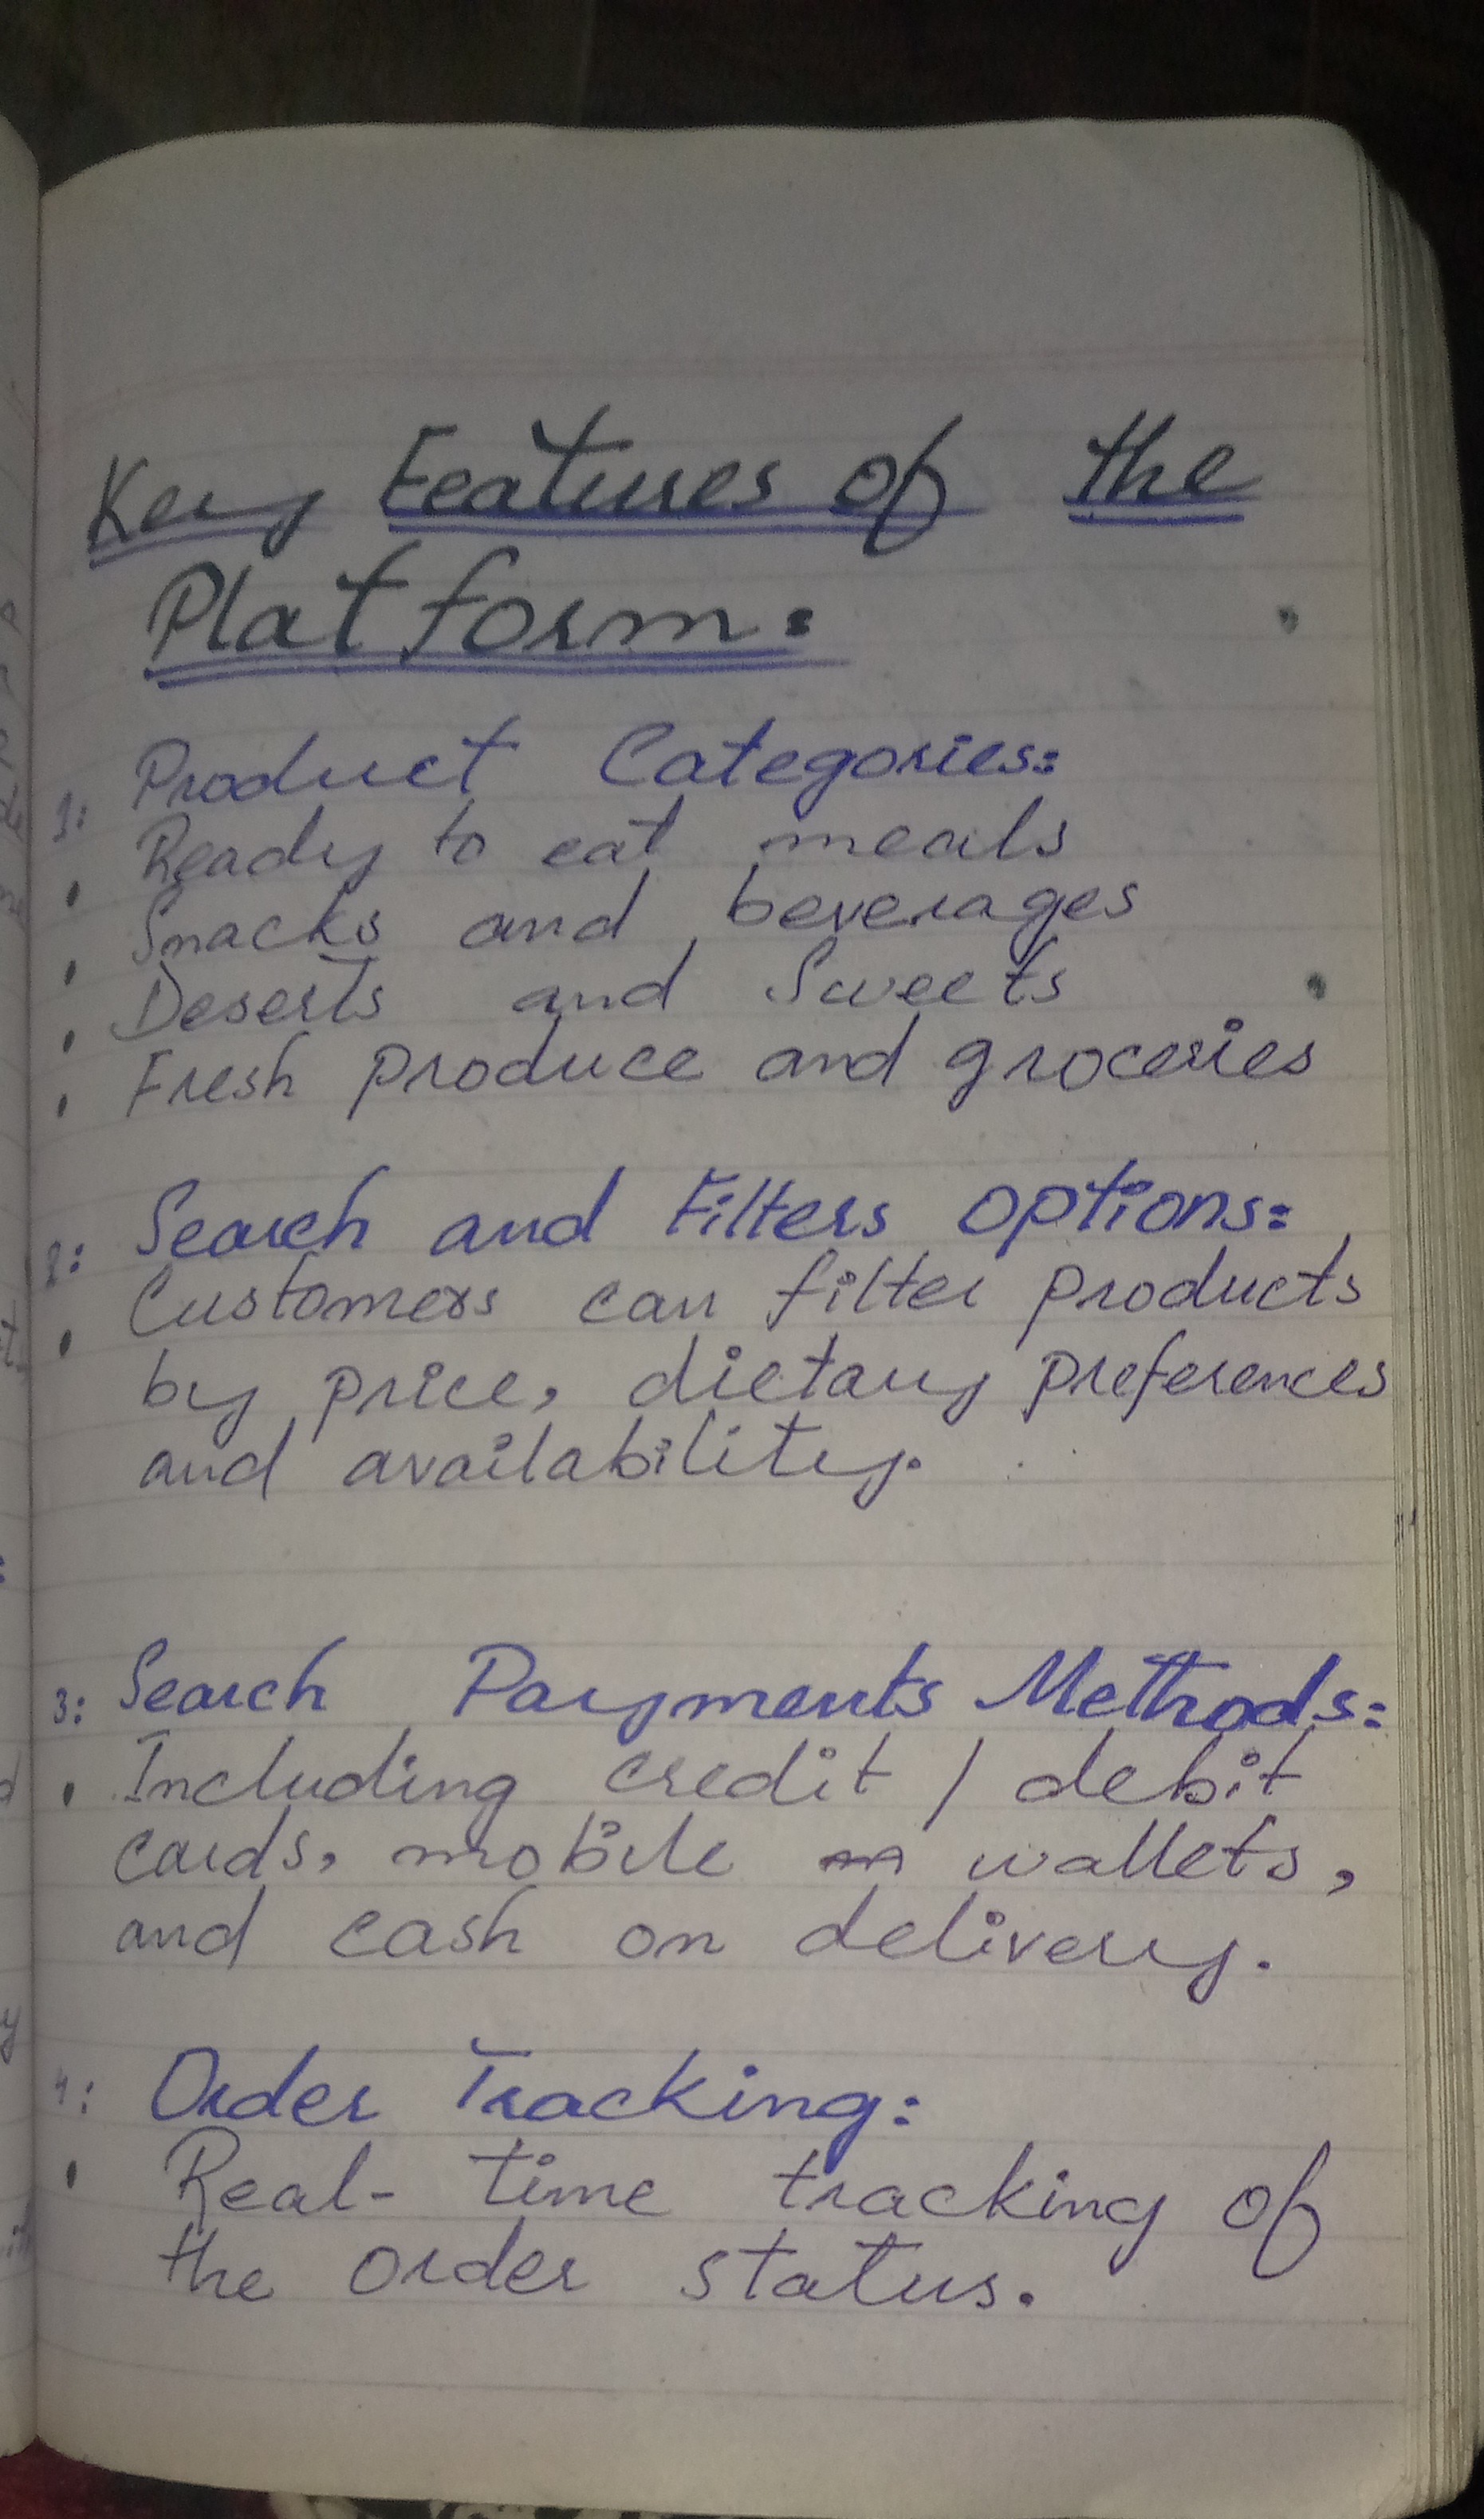 Key Features of the
Platform:
1: Product Categories:
• Ready to eat meals
• Snacks and beverages
• Deserts and Sweets
• Fresh produce and groceries
2: Search and Filters options:
• Customers can filter products
by price, dietary preferences
and availability.
3: Search Payments Methods:
• Including credit / debit
cards, mobile wallets,
and cash on delivery.
4: Order Tracking:
• Real-time tracking of
the order status.